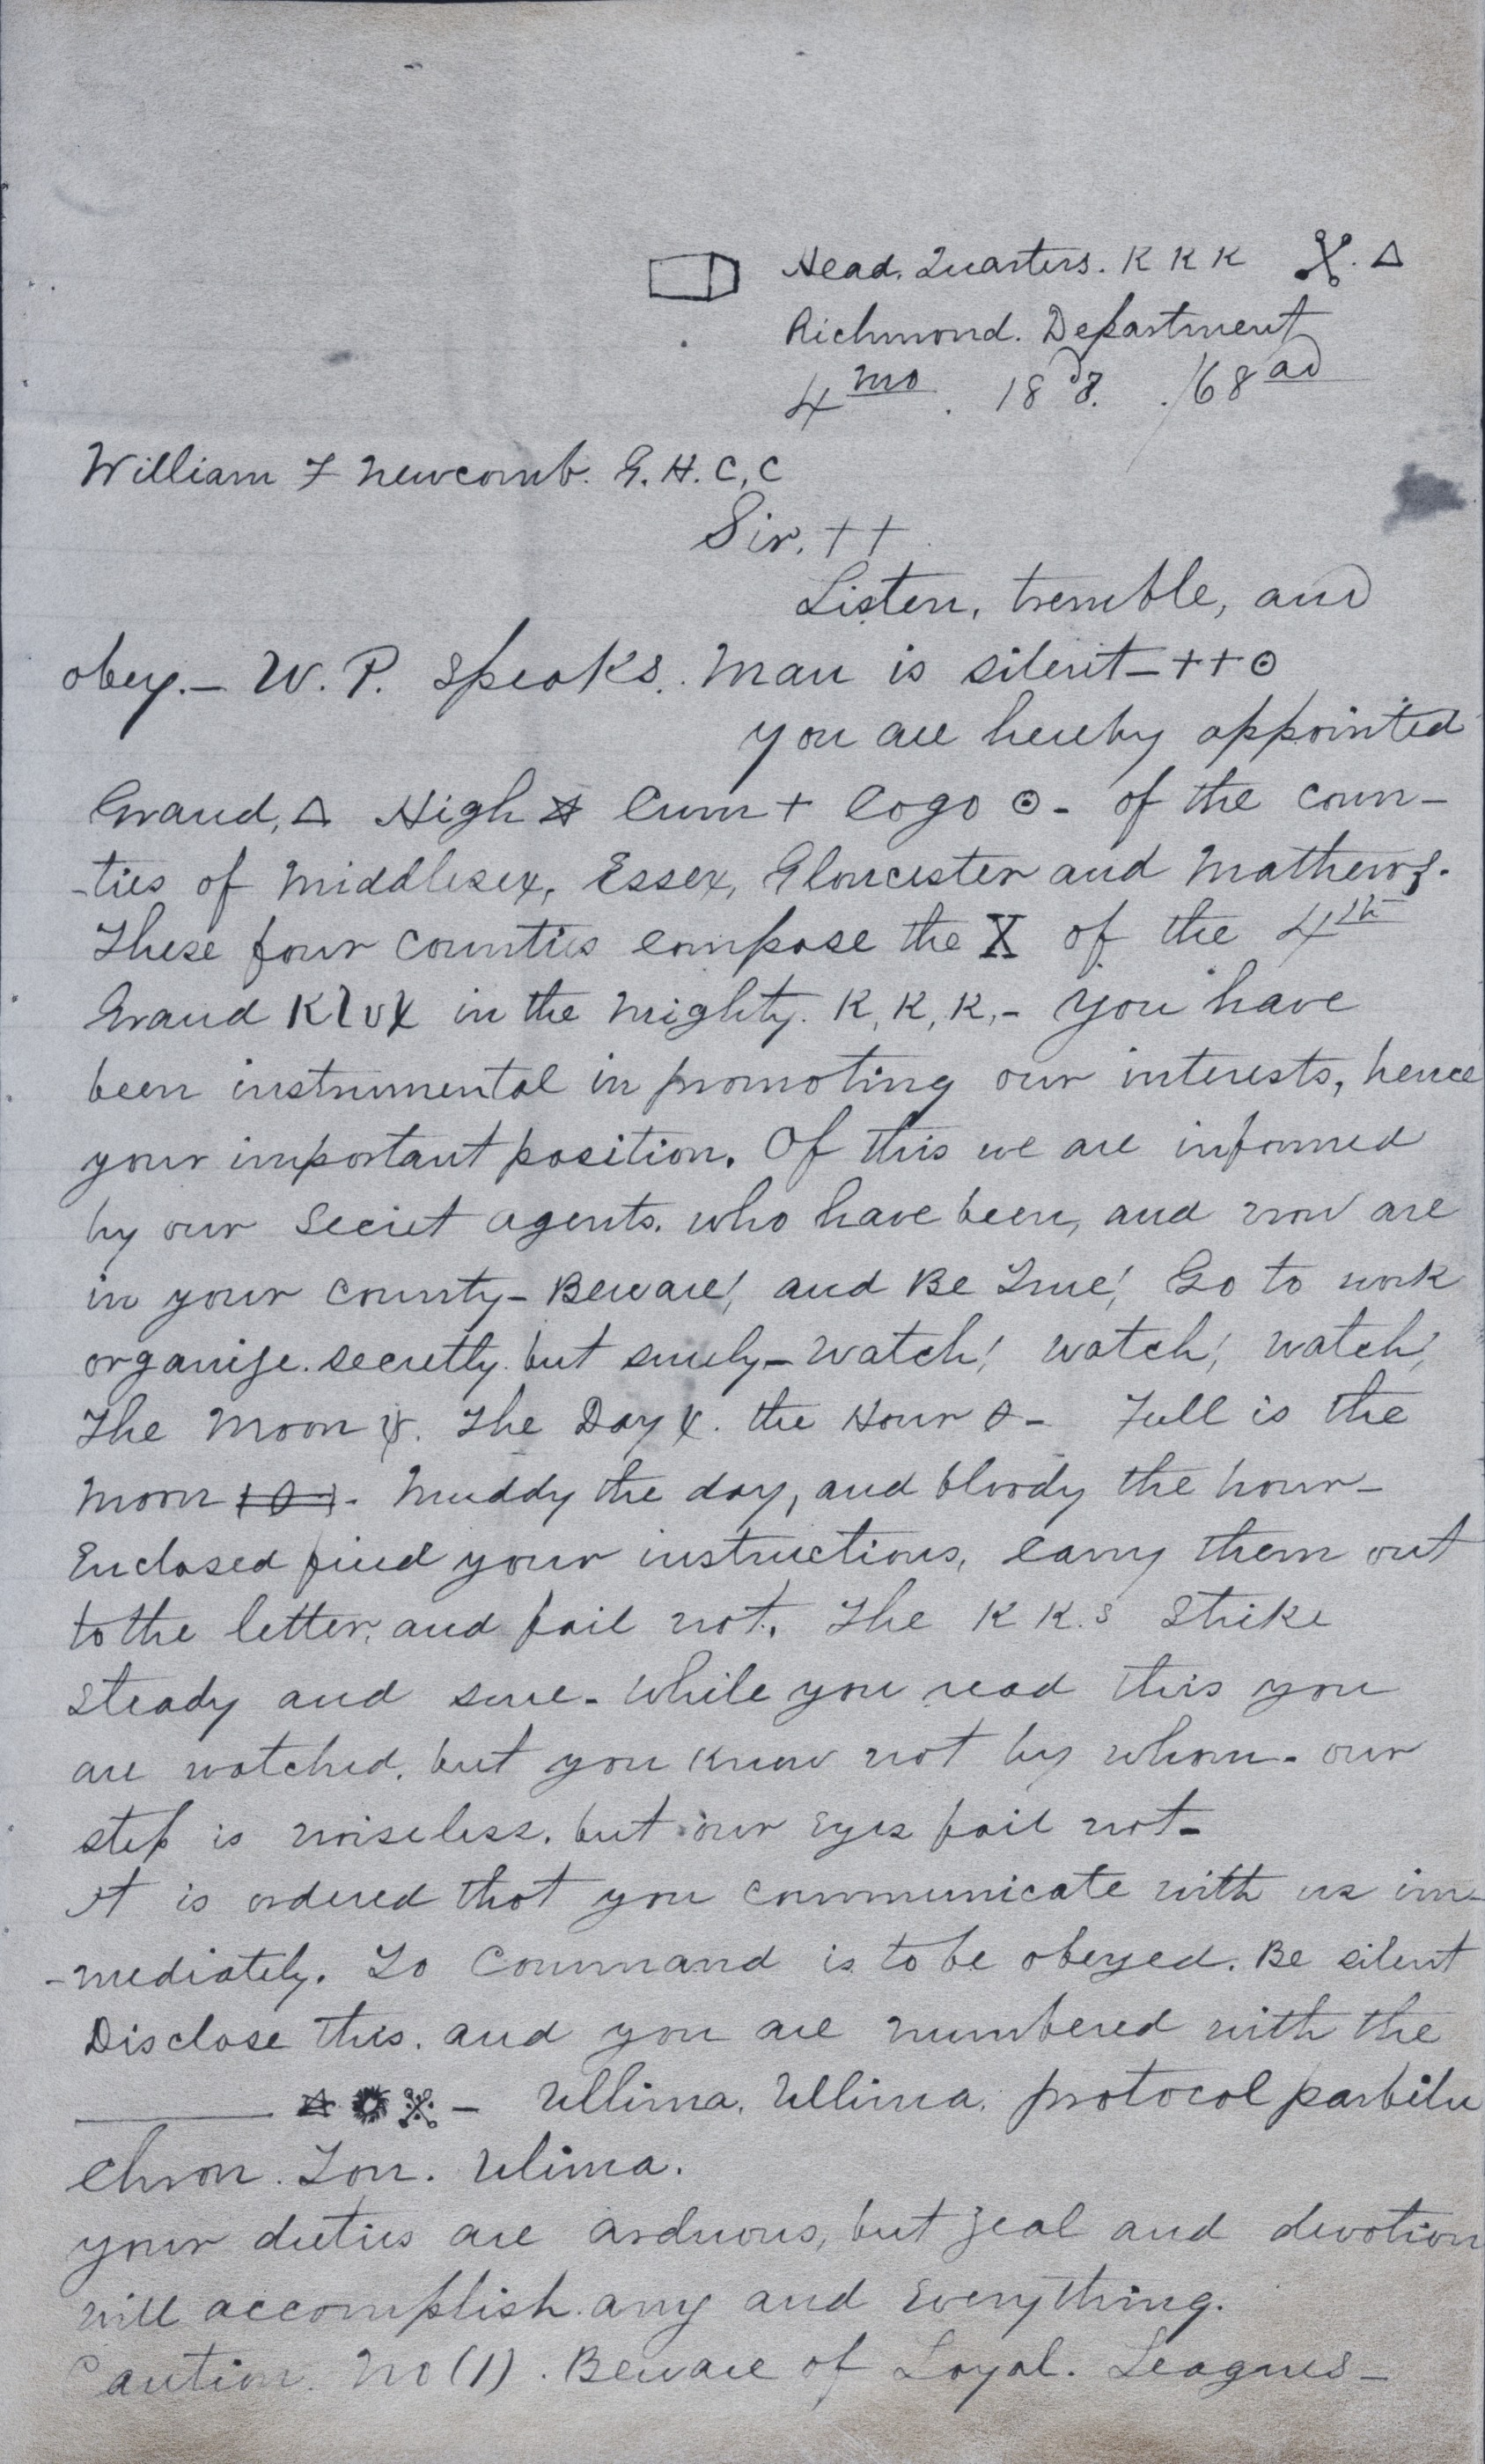 Head. Quarters. K K K
Richmond. Department
4 mo. 18 d. /68 ad
William F Newcomb. G. H. C, C
Sir. ++
Listen, tremble, and
obey.— W. P. Speaks. Man is silent—++⊙
you are hereby appointed
Grand, △ High ☆ Cum + Cogo ⊙- of the coun-
-ties of Middlesex, Essex, Gloucester and Mathews.
These four counties compose the X of the 4th
Grand Klux in the mighty. K, K, K,- you have
been instrumental in promoting our interests, hence
your important position. Of this we are informed
by our Secret agents. who have been, and now are
in your county- Beware! and Be True! Go to work
organize. secretly. but surely- watch! watch! watch!
The Moon. The Day. the Hour - Full is the
moon. Muddy the day, and bloody the hour-
Enclosed find your instructions, carry them out
to the letter, and fail not. The K K.s Strike
steady and sure- while you read this you
are watched. but you know not by whom- our
step is noiseless. but our eyes fail not-
It is ordered that you communicate with us im-
-mediately. To Command is to be obeyed. Be silent
Disclose this. and you are numbered with the
— Ullima. Ullima. protocol
chron. Ton. Ulima.
your duties are arduous, but zeal and devotion
will accomplish. any and everything.
Caution. No (1). Beware of Loyal. Leagues-